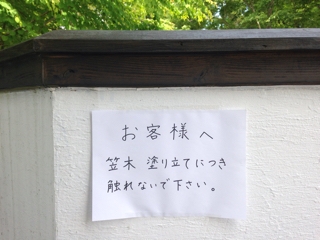 お客様へ
笠木 塗り立てにつき
触れないで下さい。